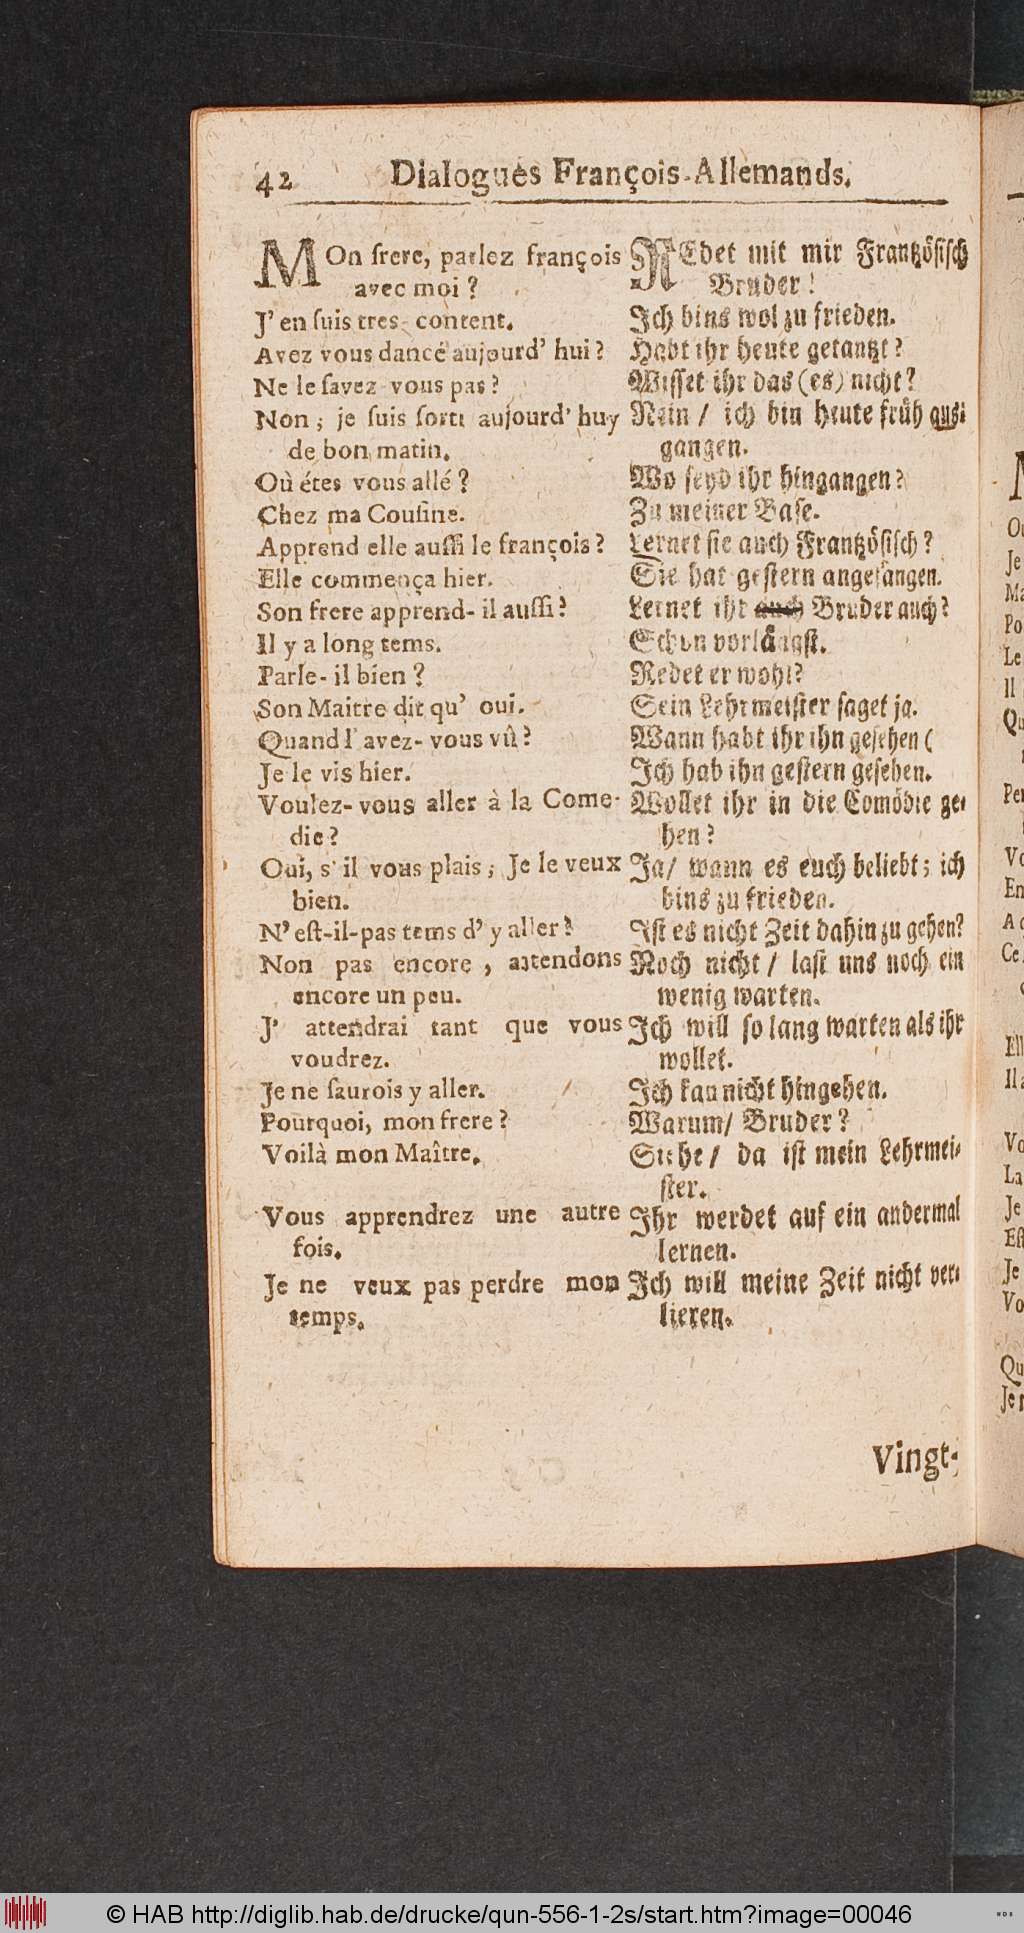 42 Dialogues François-Allemands.
MOn frere, parlez françois
avec moi ?
J' en ſuis tres-content.
Avez vous dancé aujourd' hui ?
Ne le ſavez-vous pas ?
Non; je ſuis ſorti aujourd' huy
de bon matin.
Où étes vous allé ?
Chez ma Couſine.
Apprend elle auſſi le françois ?
Elle commença hier.
Son frere apprend-il auſſi ?
Il y a long tems.
Parle-il bien ?
Son Maitre dit qu' oui.
Quand l' avez-vous vû ?
Je le vis hier.
Voulez-vous aller à la Come-
die ?
Oui, s' il vous plais; Je le veux
bien.
N' eſt-il-pas tems d' y aller ?
Non pas encore, attendons
encore un peu.
J' attendrai tant que vous
voudrez.
Je ne ſaurois y aller.
Pourquoi, mon frere ?
Voilà mon Maître.
Vous apprendrez une autre
fois.
Je ne veux pas perdre mon
temps.
REdet mit mir Frantzöſiſch
Bruder!
Ich bins wol zu frieden.
Habt ihr heute getantzt ?
Wiſſet ihr das (es) nicht ?
Nein / ich bin heute früh ausge
gangen.
Wo ſeyd ihr hingangen ?
Zu meiner Baſe.
Lernet ſie auch Frantzöſiſch ?
Sie hat geſtern angefangen.
Lernet ihr auch Bruder auch ?
Schon vorlängſt.
Redet er wohl ?
Sein Lehrmeiſter ſaget ja.
Wann habt ihr ihn geſehen (
Ich hab ihn geſtern geſehen.
Wollet ihr in die Comödie ge-
hen ?
Ja / wann es euch beliebt; ich
bins zu frieden.
Iſt es nicht Zeit dahin zu gehen?
Noch nicht / laſt uns noch ein
wenig warten.
Ich will ſo lang warten als ihr
wollet.
Ich kan nicht hingehen.
Warum / Bruder ?
Siehe / da iſt mein Lehrmei-
ſter.
Ihr werdet auf ein andermal
lernen.
Ich will meine Zeit nicht ver-
lieren.
Vingt-
Je
Po
Le
Il
Qu
Vo
En
Ce
Ell
Il a
Vo
La
Je
Eſt
Je
Vo
Qu
© HAB http://diglib.hab.de/drucke/qun-556-1-2s/start.htm?image=00046